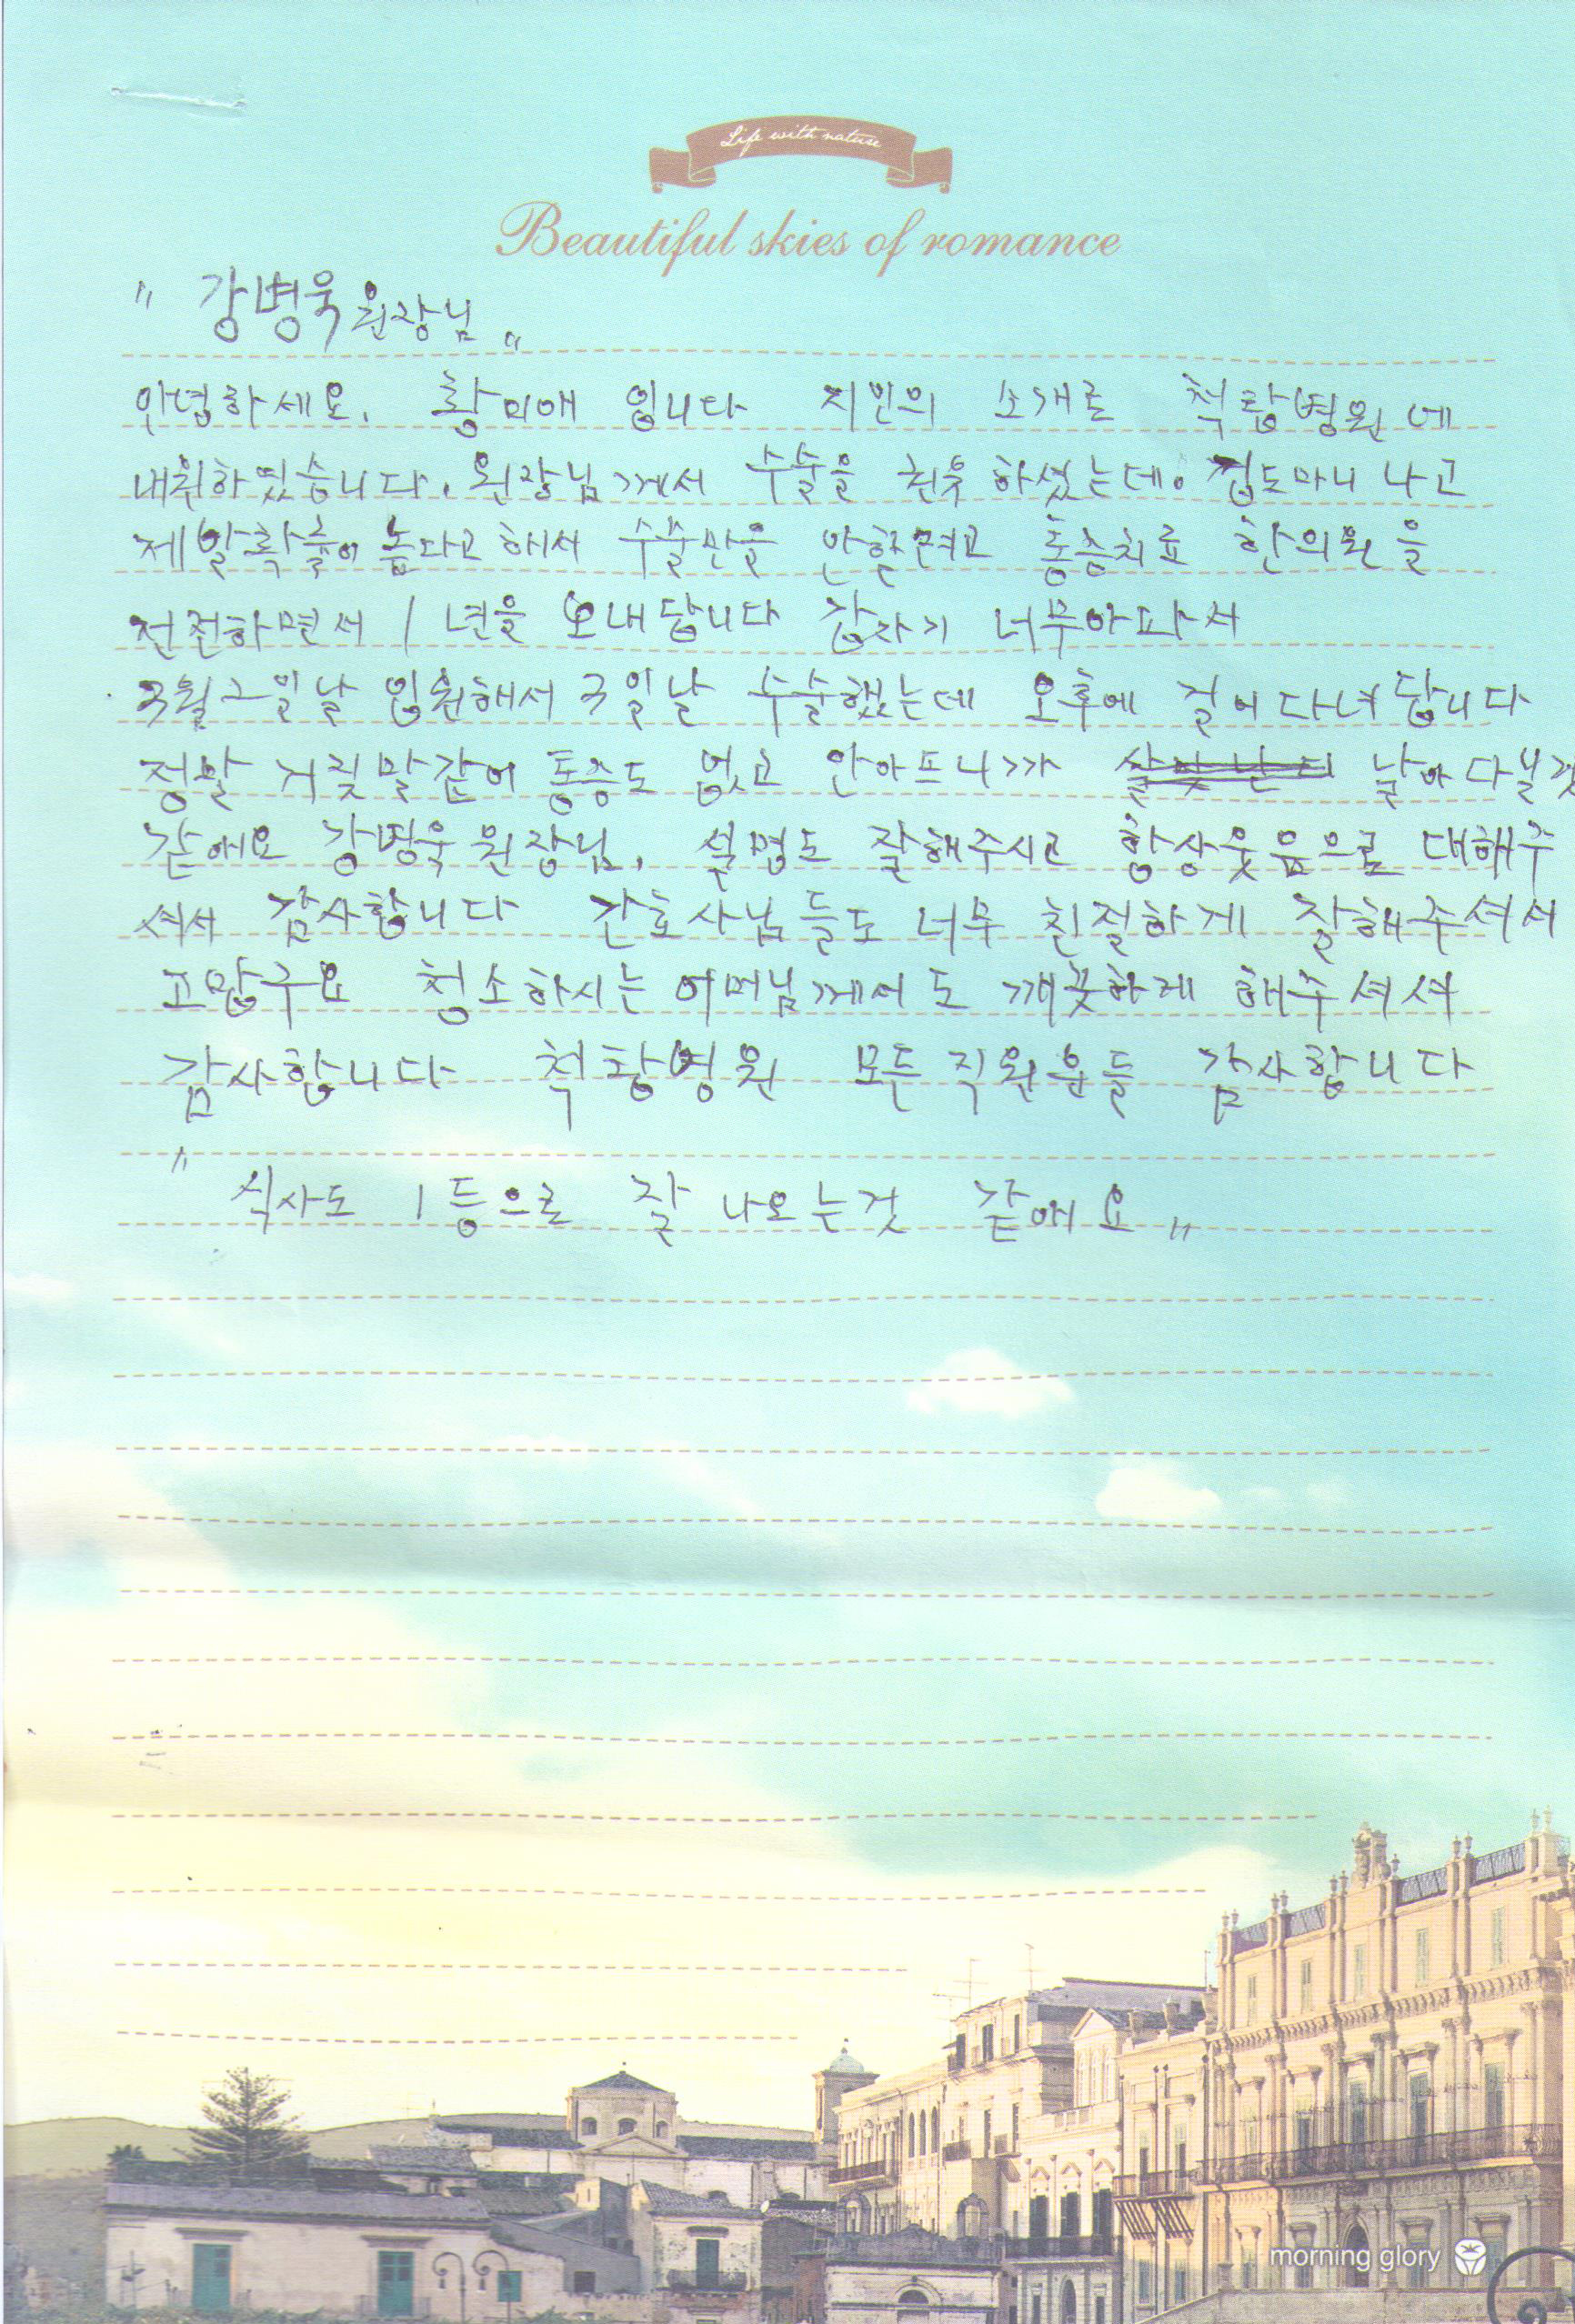 Life with nature
Beautiful skies of romance
" 강병욱 원장님 "
안녕하세요. 황미애 입니다 지인의 소개로 척탑병원에
내원하였습니다. 원장님께서 수술을 권유 하셨는데. 겁도마니 나고
제발확률이 높다고해서 수술만을 안할려고 통증치료 한의원을
전전하면서 1년을 보내답니다 갑자기 너무아파서
3월2일날 입원해서 3일날 수술했는데 오후에 걸어다녀답니다
정말 거짓말같이 통증도 없고 안아프니까 날아다닐것
같애요 강병욱원장님. 설명도 잘해주시고 항상웃음으로 대해주
셔서 감사합니다 간호사님들도 너무 친절하게 잘해주셔서
고맙구요 청소하시는 어머님께서도 깨끗하게 해주셔셔
감사합니다 척탑병원 모든직원분들 감사합니다
" 식사도 1등으로 잘 나오는것 같애요 "
morning glory